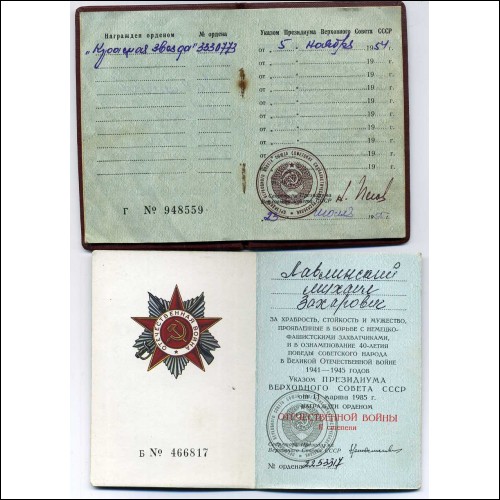 Награжден орденом № ордена
„Красная звезда" 3330773
Г № 948559
Указом Президиума Верховного Совета СССР
от 5 ноября 1954 г.
от 19 г.
от 19 г.
от 19 г.
от 19 г.
от 19 г.
от 19 г.
от 19 г.
Секретарь Президиума
Верховного Совета СССР
ОТЕЧЕСТВЕННАЯ ВОЙНА
Б № 466817
Павлинский
Михаил
Захарович
ЗА ХРАБРОСТЬ, СТОЙКОСТЬ И МУЖЕСТВО,
ПРОЯВЛЕННЫЕ В БОРЬБЕ С НЕМЕЦКО-
ФАШИСТСКИМИ ЗАХВАТЧИКАМИ,
И В ОЗНАМЕНОВАНИЕ 40-ЛЕТИЯ
ПОБЕДЫ СОВЕТСКОГО НАРОДА
В ВЕЛИКОЙ ОТЕЧЕСТВЕННОЙ ВОЙНЕ
1941—1945 ГОДОВ
Указом ПРЕЗИДИУМА
ВЕРХОВНОГО СОВЕТА СССР
от 11 марта 1985 г.
НАГРАЖДЕН ОРДЕНОМ
ОТЕЧЕСТВЕННОЙ ВОЙНЫ
II степени
Секретарь Президиума
Верховного Совета СССР
№ ордена 2253317